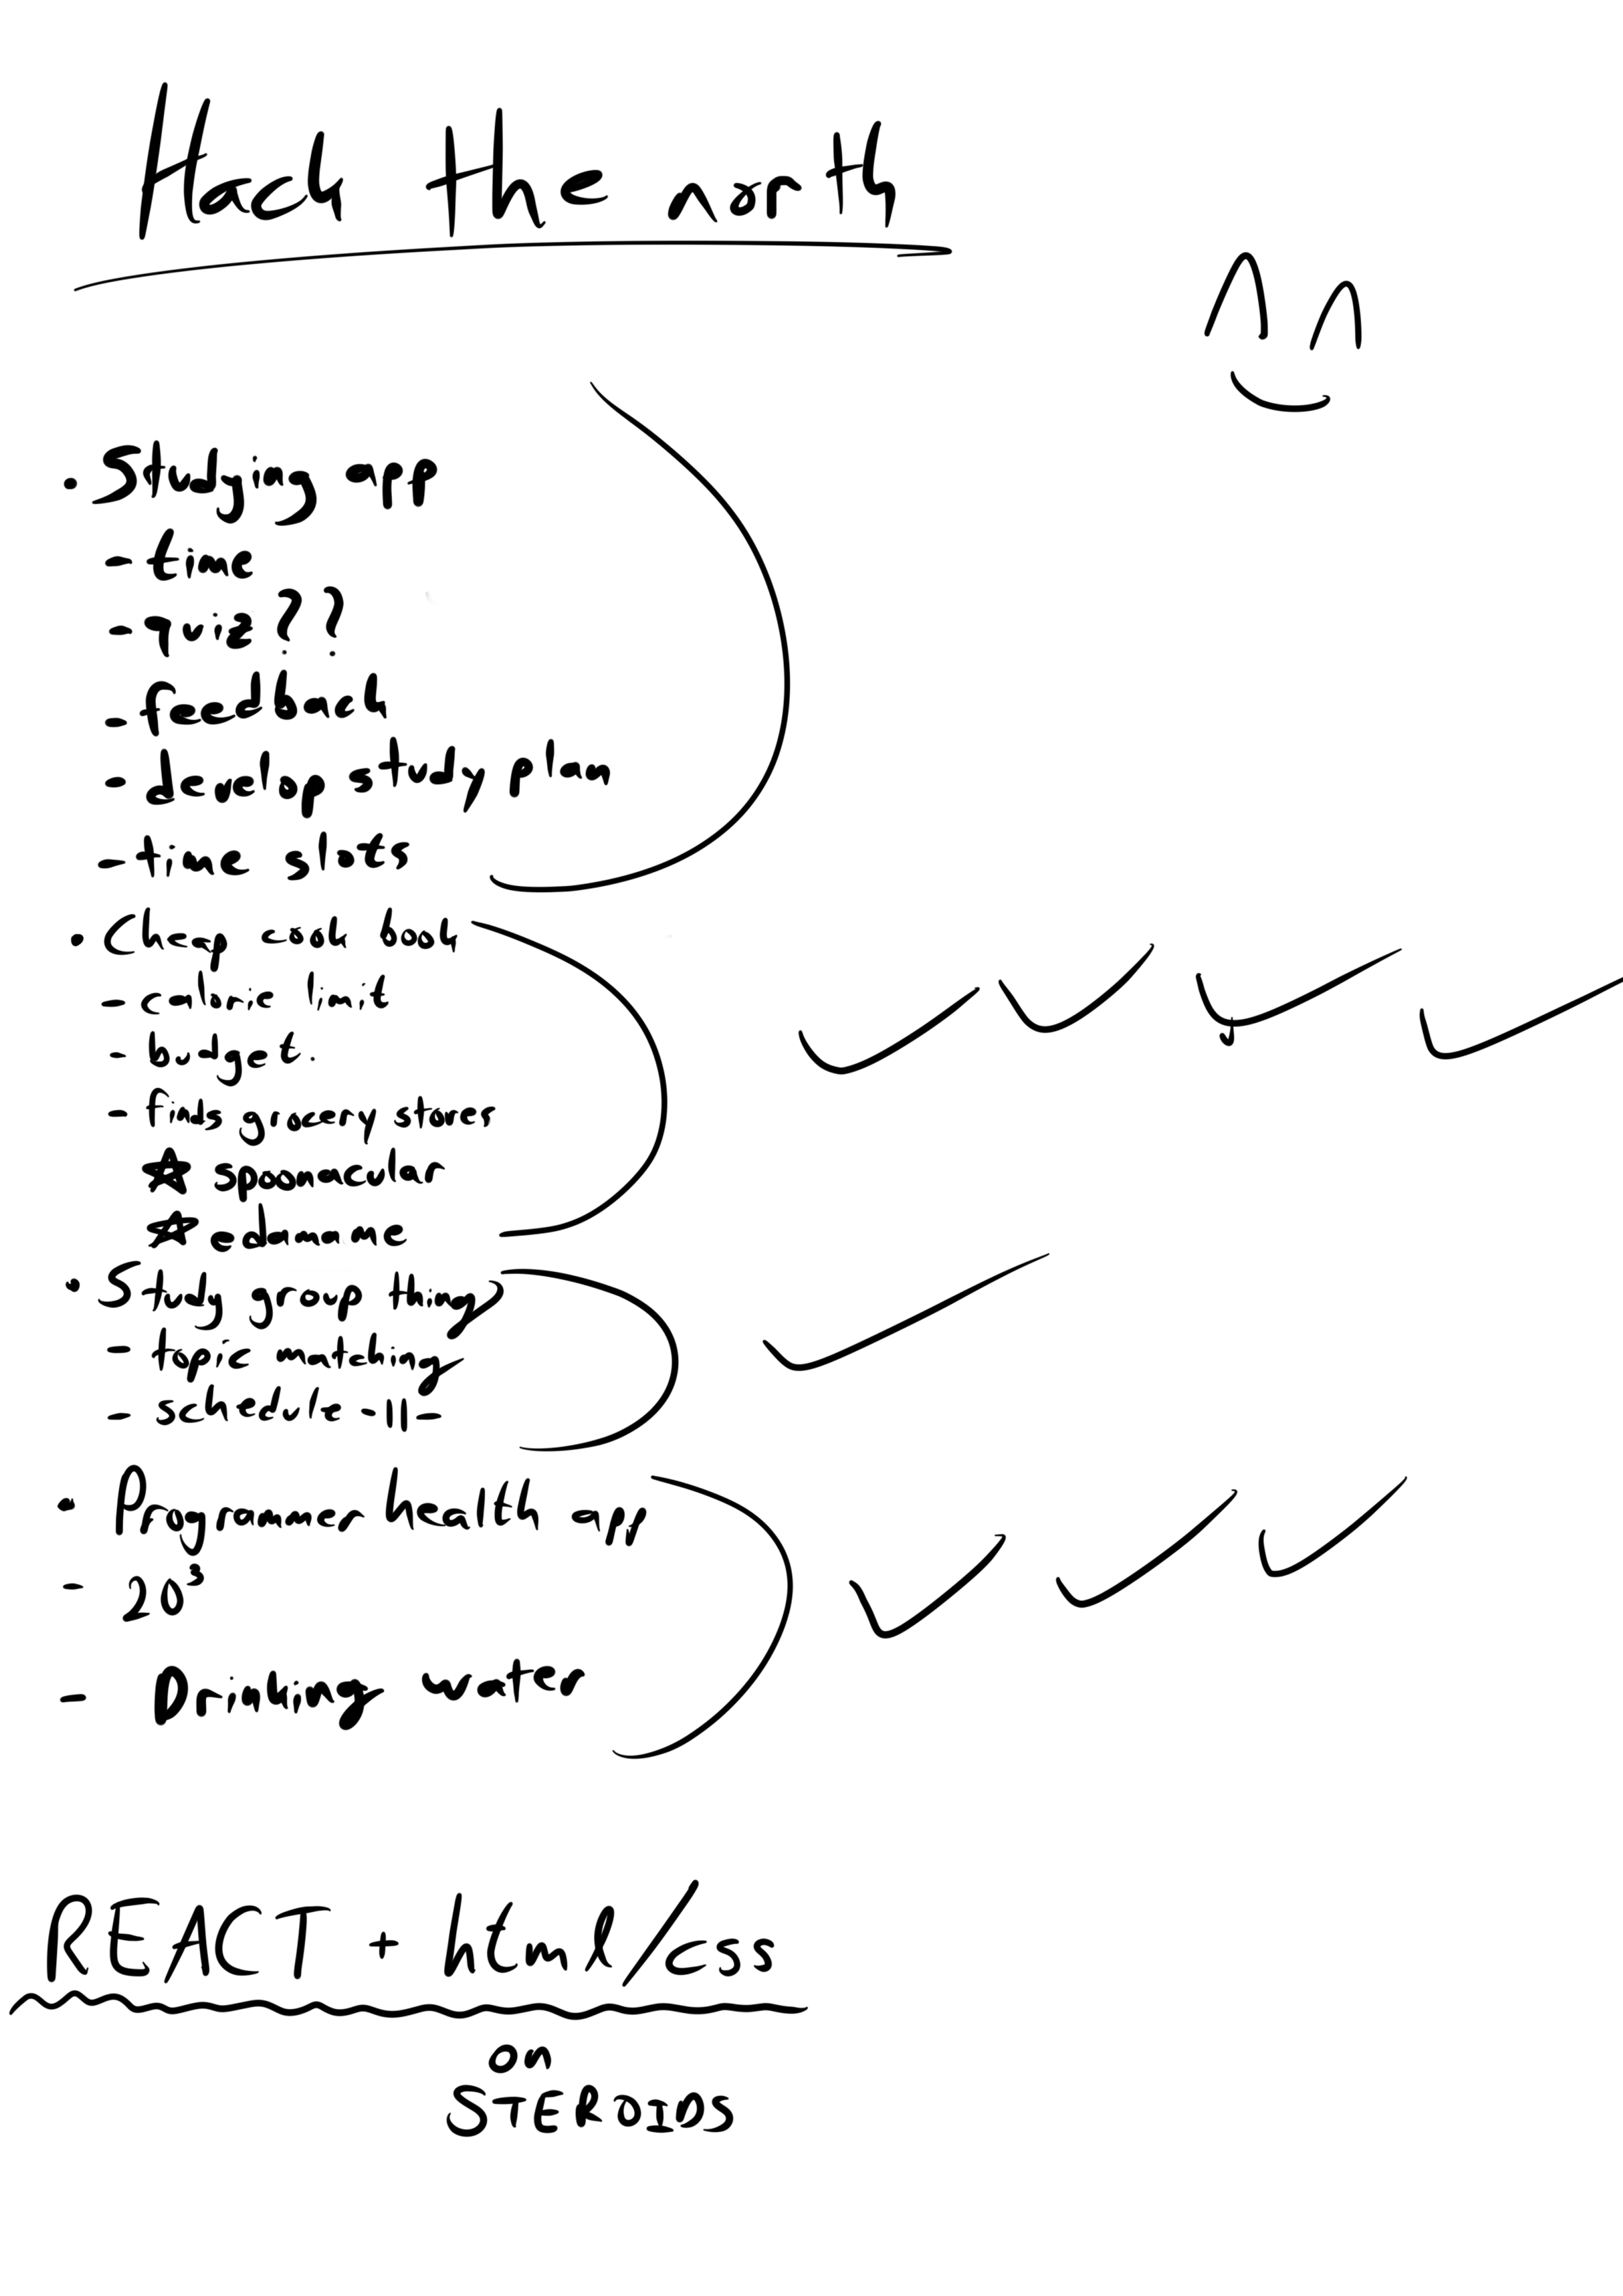 Hack the north
• Studying app
- time
- quiz??
- feedback
- develop study plan
- time slots
• Cheap cook book
- caloric limit
- budget.
- finds grocery stores
★ spoonacular
★ edamame
• Study group thing
- topic matching
- schedule -||-
• Programmer health app
- 20³
- Drinking water
REACT + html/css
on
STEROIDS